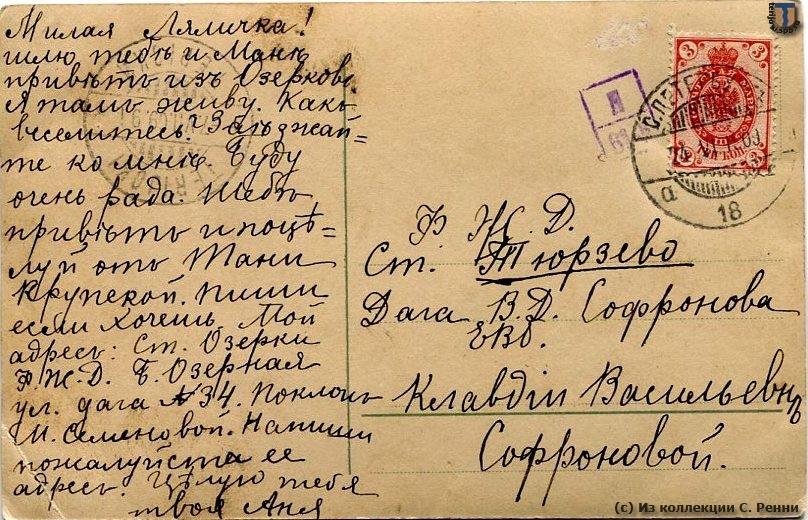 Милая Ляличка!
шлю тебѣ и Манѣ
привѣтъ изъ Озерковъ
Я тамъ живу. Какъ
веселитесь? Заѣзжай-
те ко мнѣ. Буду
очень рада. Тебѣ
привѣтъ и поцѣ=
луй отъ Тани
Крупской. Пиши
если хочешь. Мой
адресъ: Ст. Озерки
Ф. Ж. Д. Б. Озерная
ул. дача № 34. Поклонъ
М. Семеновой. Напиши
пожалуйста ее
адресъ. Цѣлую тебя
твоя Аня
Ф. Ж. Д.
Ст. Тюрзево
Дача В. Д. Софронова
ЕВБ.
Клавдіи Васильевнѣ
Софроновой.
3 3
3 3
18
(с) Из коллекции С. Ренни